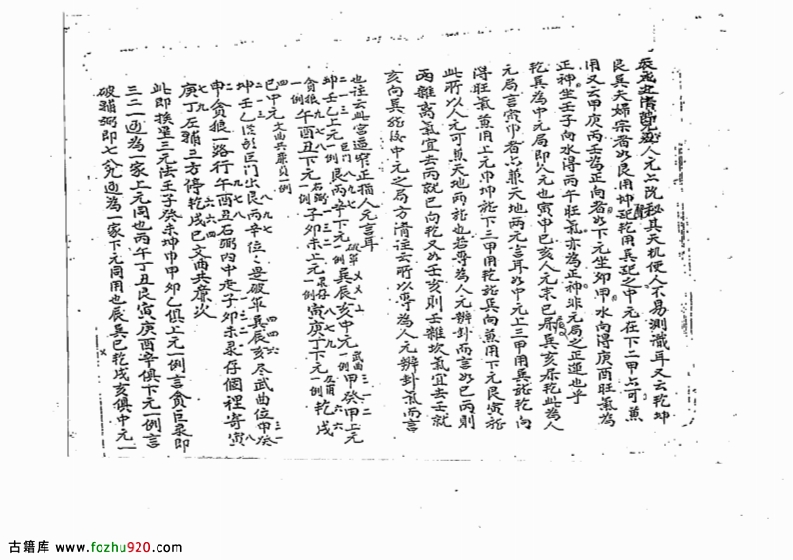 人元亦阮秘其天机使人不易測識耳又云乾坤
艮巽夫婦宗者如艮用坤配乾用巽配之中元在下二甲占可兼
用又云甲庚丙壬為正向者如下元坐卯甲水向得庚酉旺氣為
正神坐壬子向水得丙午旺氣亦為正神非元局之正運也乎
乾巽為中元局即人元也寅申巳亥人元末巳屬巽亥屬乾此為人
元局言寅申者占兼天地兩元言耳如中元上三甲用巽詫乾向
得旺氣兼用上元甲坤詫下三甲用乾詫巽向兼用下元艮寅詫
此所以人元可兼天地兩詫也若專為人元辨卦而言如巳丙則
丙雜离氣宜去丙就巳向乾又如壬亥則壬雜坎氣宜去壬就
亥向巽詫後中元之局方清注云所以專為人元辨卦氣而言
也注云此宮逼窄正指人元言耳
坤壬乙上元一例艮丙辛下元一例巽辰亥中元一例甲癸申上元
一例午酉丑下元一例子卯未上元一例寅庚丁下元一例乾戌
巳中元
坤壬乙 巨門出艮丙辛位位是破軍巽辰亥尽武曲位甲癸
申貪狼一路行午酉丑右弼內中走子卯未彔存個裡寄寅
庚丁左輔三方停乾戌巳文曲共廉火
此即挨星三元法壬子癸未坤申甲卯乙俱上元一例言貪巨彔即
三二一逈為一家上元同也丙午丁丑艮寅庚酉辛俱下元一例言
破輔弼即七八九逈為一家下元同用也辰巽巳乾戌亥俱中元一
古籍库 www.fozhu920.com